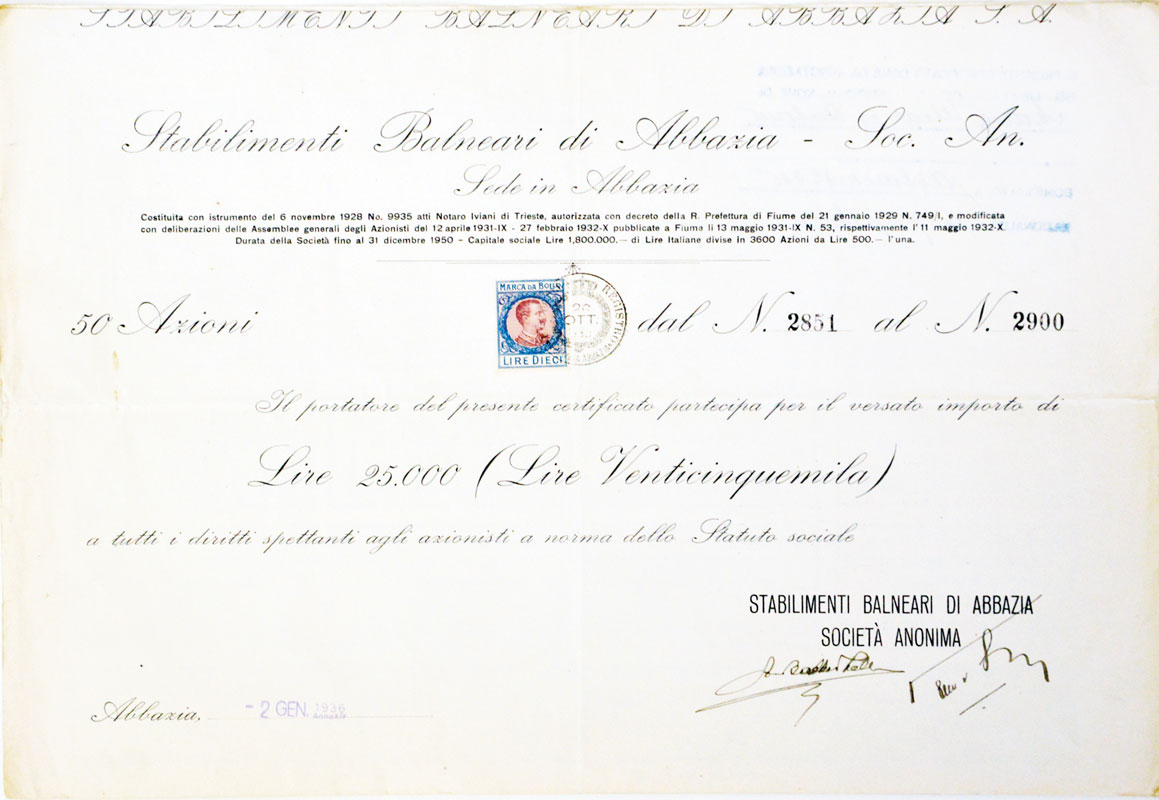 STABILIMENTI BALNEARI DI ABBAZIA S. A.
Stabilimenti Balneari di Abbazia - Soc. An.
Sede in Abbazia
Costituita con istrumento del 6 novembre 1928 No. 9935 atti Notaro Iviani di Trieste, autorizzata con decreto della R. Prefettura di Fiume del 21 gennaio 1929 N. 749/I, e modificata
con deliberazioni delle Assemblee generali degli Azionisti del 12 aprile 1931-IX - 27 febbraio 1932-X pubblicate a Fiume li 13 maggio 1931-IX N. 53, rispettivamente l'11 maggio 1932-X.
Durata della Società fino al 31 dicembre 1950 - Capitale sociale Lire 1,800.000.— di Lire Italiane divise in 3600 Azioni da Lire 500.— l'una.
MARCA DA BOLLO
REGISTRO
26
OTT.
LIRE DIECI
50 Azioni dal N. 2851 al N. 2900
Il portatore del presente certificato partecipa per il versato importo di
Lire 25.000 (Lire Venticinquemila)
a tutti i diritti spettanti agli azionisti a norma dello Statuto sociale
STABILIMENTI BALNEARI DI ABBAZIA
SOCIETÀ ANONIMA
Abbazia, - 2 GEN. 1936